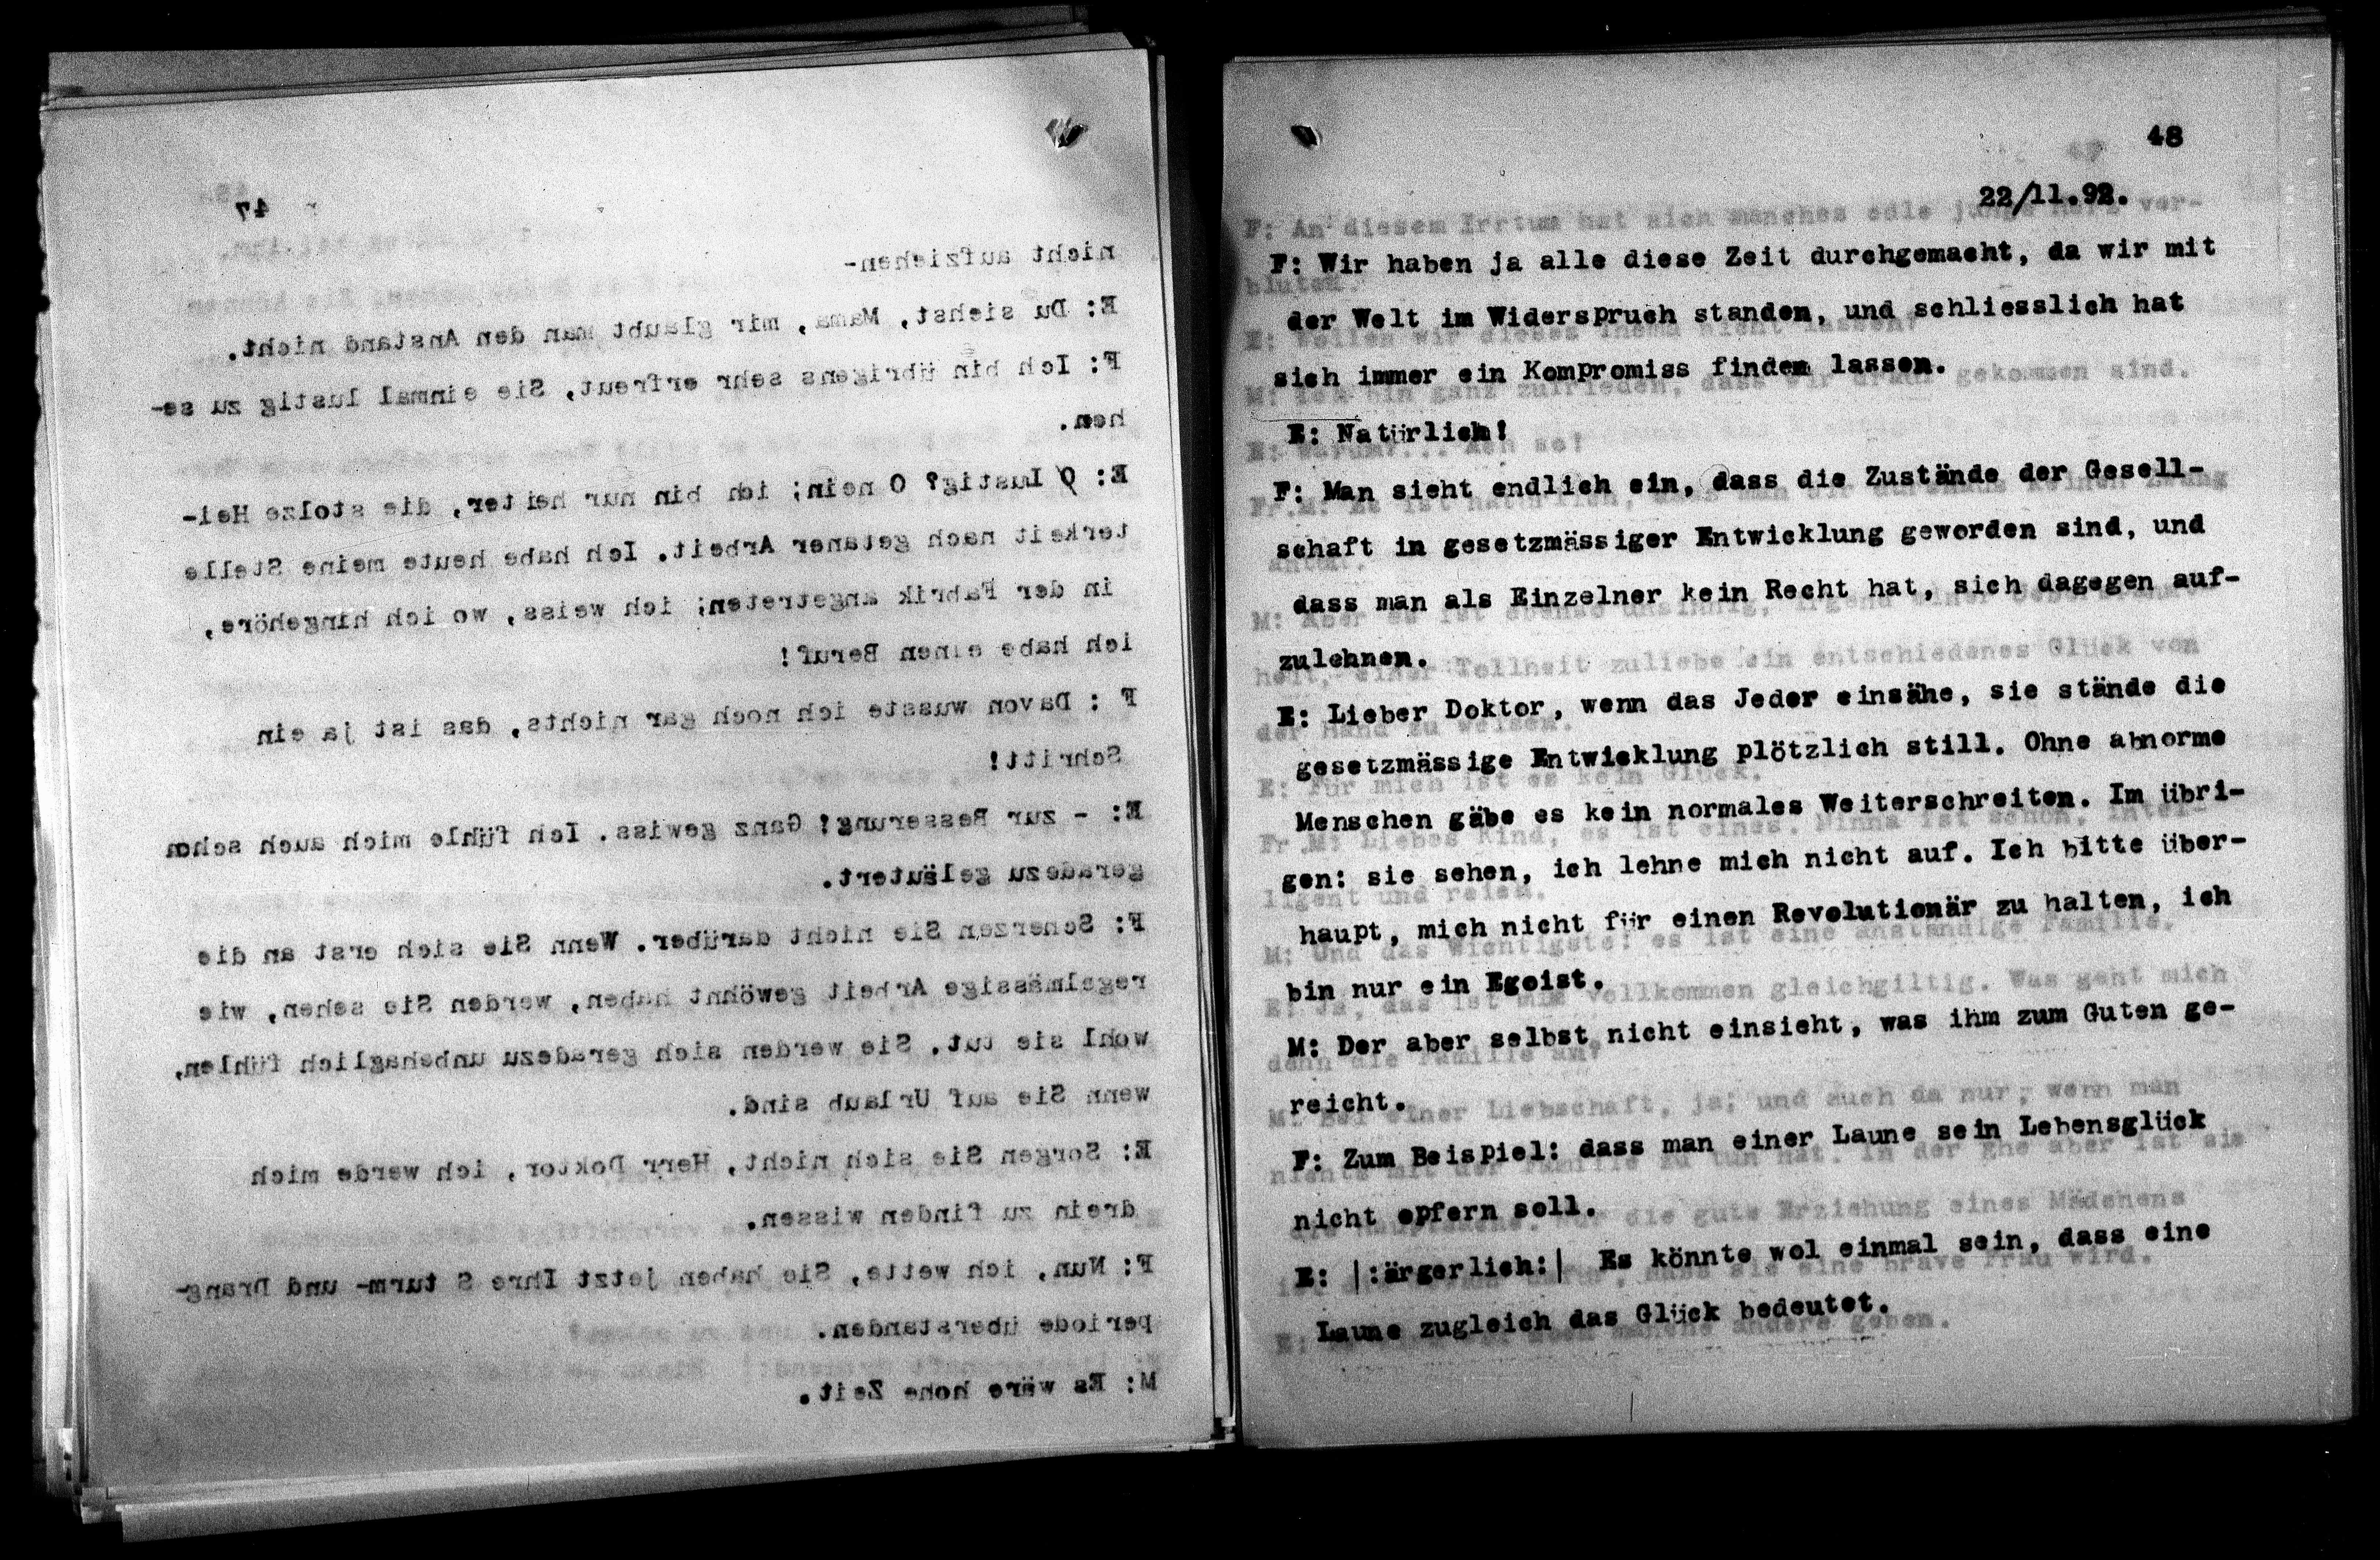 47
nicht aufziehen-
E: Du siehst, Mama, mir glaubt man den Anstand nicht.
F: Ich bin übrigens sehr erfreut, Sie einmal lustig zu se-
hen.
E: O Lustig? O nein; ich bin nur heiter, die stolze Hei-
terkeit nach getaner Arbeit. Ich habe heute meine Stelle
in der Fabrik angetreten; ich weiss, wo ich hingehöre,
ich habe einen Beruf!
F : Davon wusste ich noch gar nichts, das ist ja ein
Schritt!
E: - zur Besserung! Ganz gewiss. Ich fühle mich auch schon
geradezu geläutert.
F: Scherzen Sie nicht darüber. Wenn Sie sich erst an die
regelmässige Arbeit gewöhnt haben, werden Sie sehen, wie
wohl sie tut. Sie werden sich geradezu unbehaglich fühlen,
wenn Sie auf Urlaub sind.
E: Sorgen Sie sich nicht, Herr Doktor, ich werde mich
drein zu finden wissen.
F: Nun, ich wette, Sie haben jetzt Ihre S turm- und Drang-
periode überstanden.
M: Es wäre hohe Zeit.
48
22/11.92.
F: Wir haben ja alle diese Zeit durchgemacht, da wir mit
der Welt im Widerspruch standen, und schliesslich hat
sich immer ein Kompromiss finden lassen.
E: Natürlich!
F: Man sieht endlich ein, dass die Zustände der Gesell-
schaft in gesetzmässiger Entwicklung geworden sind, und
dass man als Einzelner kein Recht hat, sich dagegen auf-
zulehnen.
E: Lieber Doktor, wenn das Jeder einsähe, sie stände die
gesetzmässige Entwicklung plötzlich still. Ohne abnorme
Menschen gäbe es kein normales Weiterschreiten. Im übri-
gen: sie sehen, ich lehne mich nicht auf. Ich bitte über-
haupt, mich nicht für einen Revolutionär zu halten, ich
bin nur ein Egoist.
M: Der aber selbst nicht einsieht, was ihm zum Guten ge-
reicht.
F: Zum Beispiel: dass man einer Laune sein Lebensglück
nicht opfern soll.
E: |:ärgerlich:| Es könnte wol einmal sein, dass eine
Laune zugleich das Glück bedeutet.